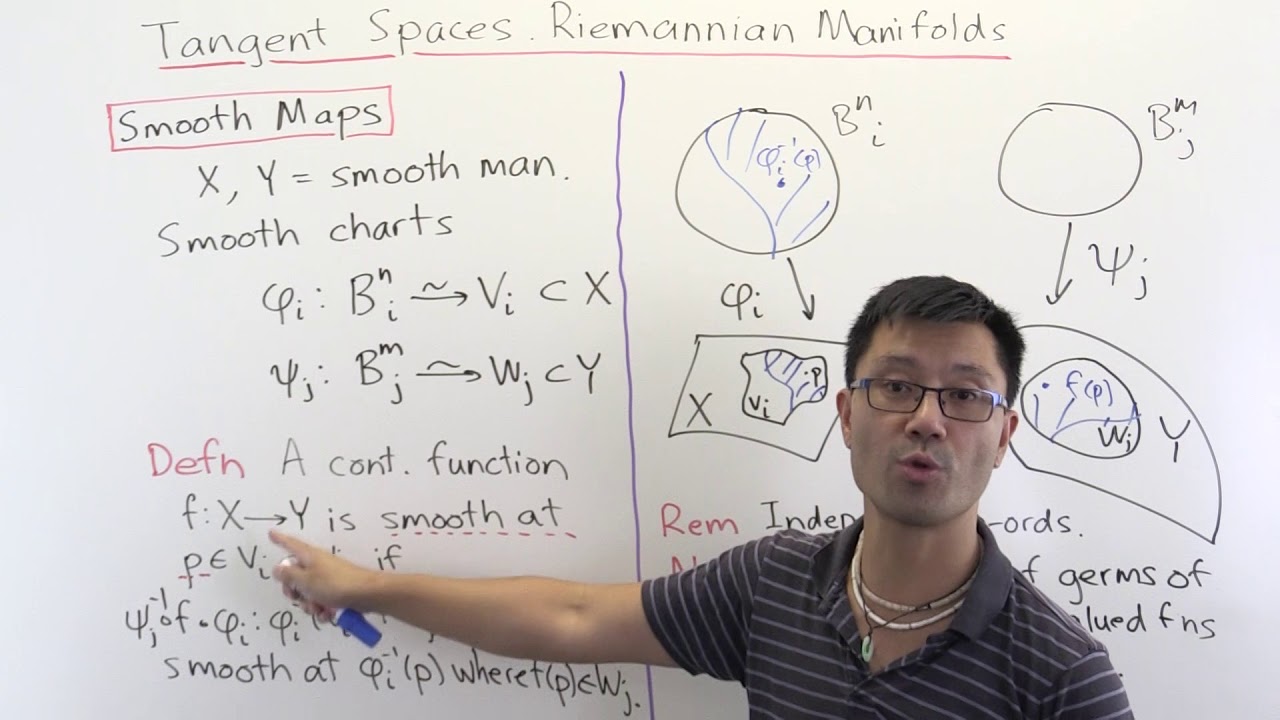 Tangent Spaces. Riemannian Manifolds
Smooth Maps
X, Y = smooth man.
Smooth charts
φᵢ : Bᵢⁿ ⥲ Vᵢ ⊂ X
ψⱼ : Bⱼᵐ ⥲ Wⱼ ⊂ Y
Defn A cont. function
f: X → Y is smooth at
p ∈ Vᵢ if
ψⱼ⁻¹∘f∘φᵢ : φᵢ⁻¹(
smooth at φᵢ⁻¹(p) where f(p)∈Wⱼ.
Bᵢⁿ
φᵢ⁻¹(p)
φᵢ
X
Vᵢ
.p
Bⱼᵐ
ψⱼ
f(p)
Wⱼ
Y
Rem -ords.
of germs of
fns